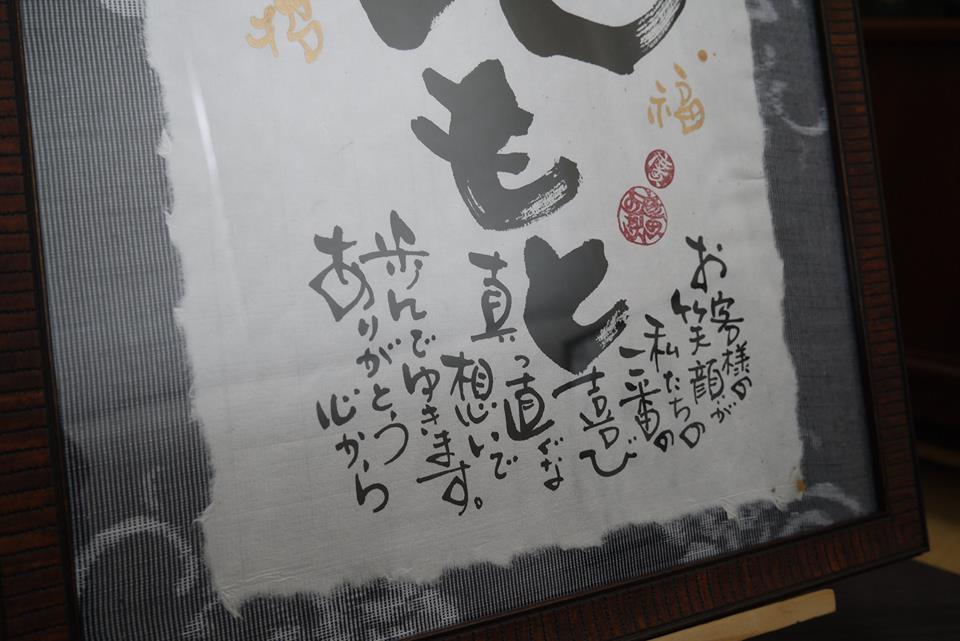 もと
福
招
お客様の
笑顔が
私たちの
一番の
喜び
真っ直ぐな
想いで
歩んでゆきます。
ありがとう
心から